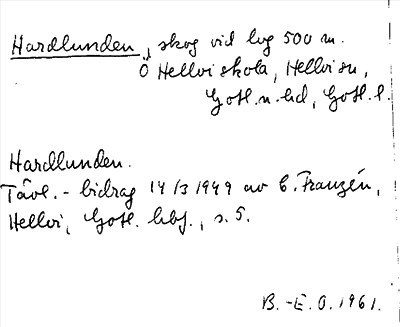 Hardlunden, skog vid lvg 500 m.
Ö Hellvi skola, Hellvi sn,
Gotl. n. hd, Gotl. l.
Hardlunden.
Tävl.-bidrag 14/3 1949 av E. Franzén,
Hellvi, Gotl. hbf., s. 5.
B.-E. O. 1961.